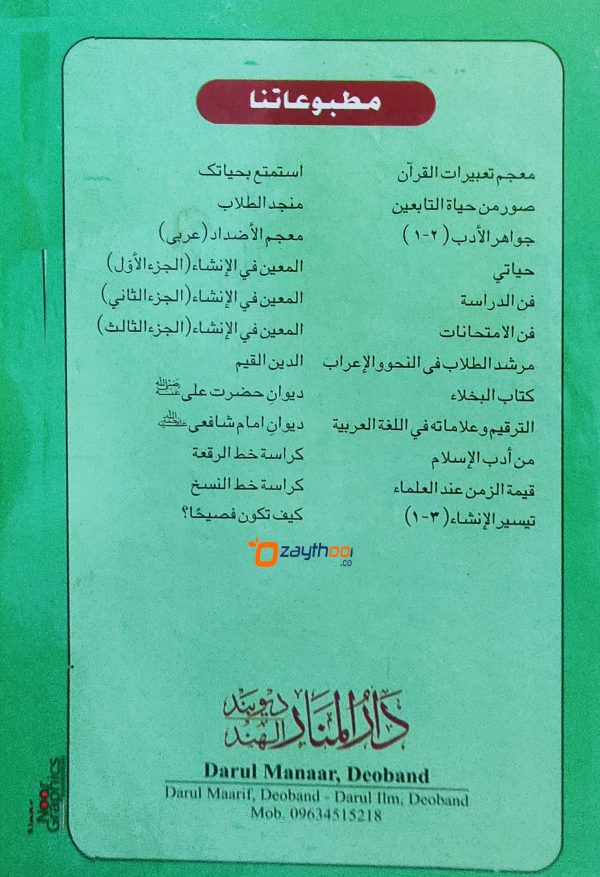 مطبوعاتنا
معجم تعبيرات القرآن
صور من حياة التابعين
جواهر الأدب (١-٢)
حياتي
فن الدراسة
فن الامتحانات
مرشد الطلاب فى النحو والإعراب
كتاب البخلاء
الترقيم وعلاماته في اللغة العربية
من أدب الإسلام
قيمة الزمن عند العلماء
تيسير الإنشاء (١-٣)
استمتع بحياتک
منجد الطلاب
معجم الأضداد (عربی)
المعين في الإنشاء (الجزء الأوّل)
المعين في الإنشاء (الجزء الثاني)
المعين في الإنشاء (الجزء الثالث)
الدين القيم
ديوانِ حضرت علی
ديوانِ امام شافعی
كراسة خط الرقعة
كراسة خط النسخ
كيف تكون فصيحًا؟
zaythoon
.co
دَارُ المَنار ديوبند الهند
Darul Manaar, Deoband
Darul Maarif, Deoband - Darul Ilm, Deoband
Mob. 09634515218
Noor
Graphics